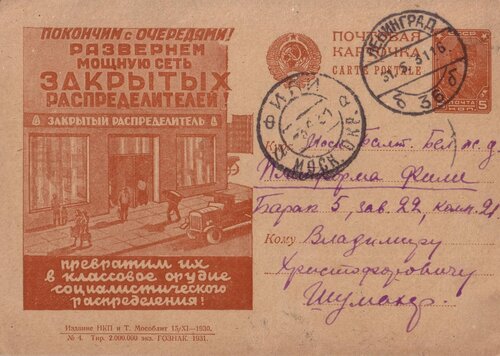 ПОКОНЧИМ с ОЧЕРЕДЯМИ!
РАЗВЕРНЕМ
МОЩНУЮ СЕТЬ
ЗАКРЫТЫХ
РАСПРЕДЕЛИТЕЛЕЙ
ЗАКРЫТЫЙ РАСПРЕДЕЛИТЕЛЬ
превратим их
в классовое орудие
социалистического
распределения!
Издание НКП и Т. Мособлит 15/XI—1930.
№ 4. Тир. 2.000.000 экз. ГОЗНАК. 1931.
ПОЧТОВАЯ
КАРТОЧКА
CARTE POSTALE
ПОЧТА
5
КОП.
ЛЕНИНГРАД
31.5.31 16
36
ФИЛИ
МОСК. ОКР.
Куда Моск. Белт. Бел. ж. д.
Платформа Фили
Барак 5, зав. 22, комн. 21
Кому Владимиру
Христофоровичу